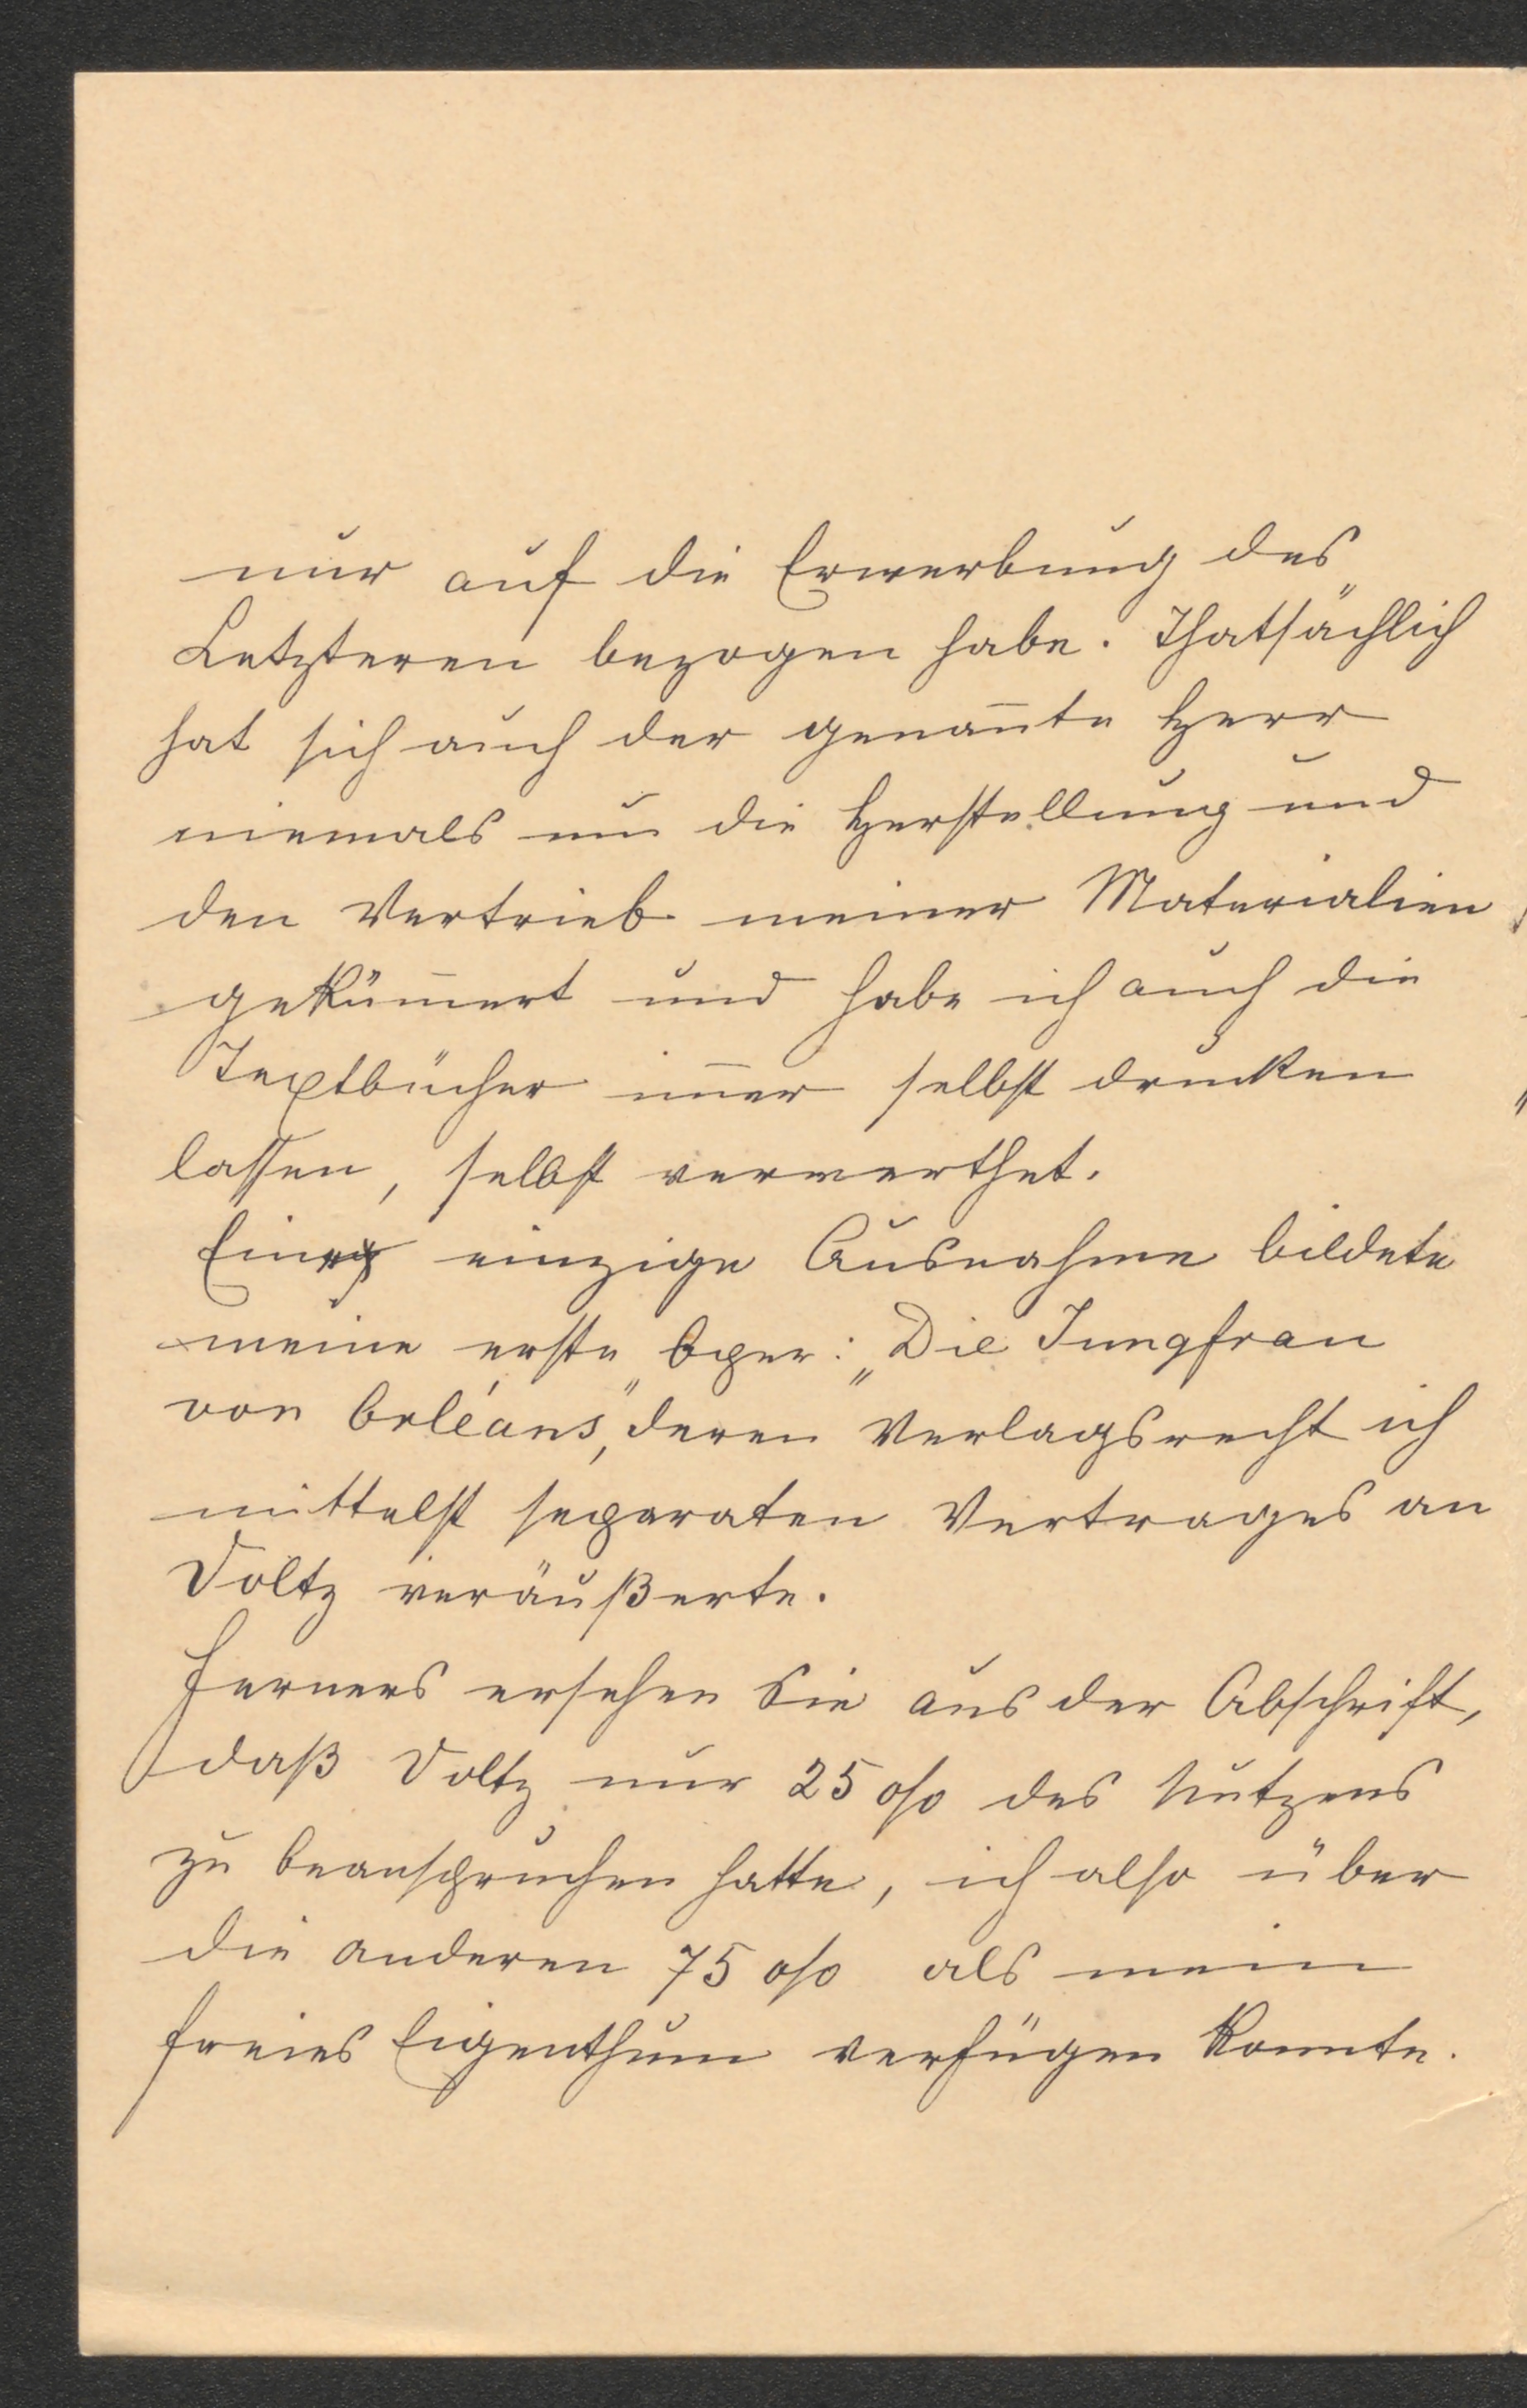 nur auf die Erwerbung des
Letzteren bezogen habe. Thatsächlich
hat sich auch der genan̄te Herr
niemals um die Herstellung und
den Vertrieb meiner Materialien
geküm̄ert und habe ich auch die
Textbücher im̄er selbst drucken
lassen, selbst verwerthet.
Eine einzige Ausnahme bildete
meine erste Oper: „Die Jungfrau
von Orléans“, deren Verlagsrecht ich
mittelst separaten Vertrages an
Voltz veräußerte.
Ferners ersehen Sie aus der Abschrift,
daß Voltz nur 25 o/o des Nutzens
zu beanspruchen hatte, ich also über
die anderen 75 o/o als mein
freies Eigenthum verfügen konnte.